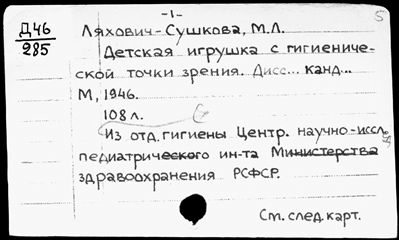 -1-
5
Д46
285
Ляхович-Сушкова, М.Л.
Детская игрушка с гигиениче-
ской точки зрения. Дисс... канд...
М, 1946.
108 л.
Из отд. гигиены Центр. научно-иссл.
педиатрического ин-та Министерства
здравоохранения РСФСР.
См. след. карт.